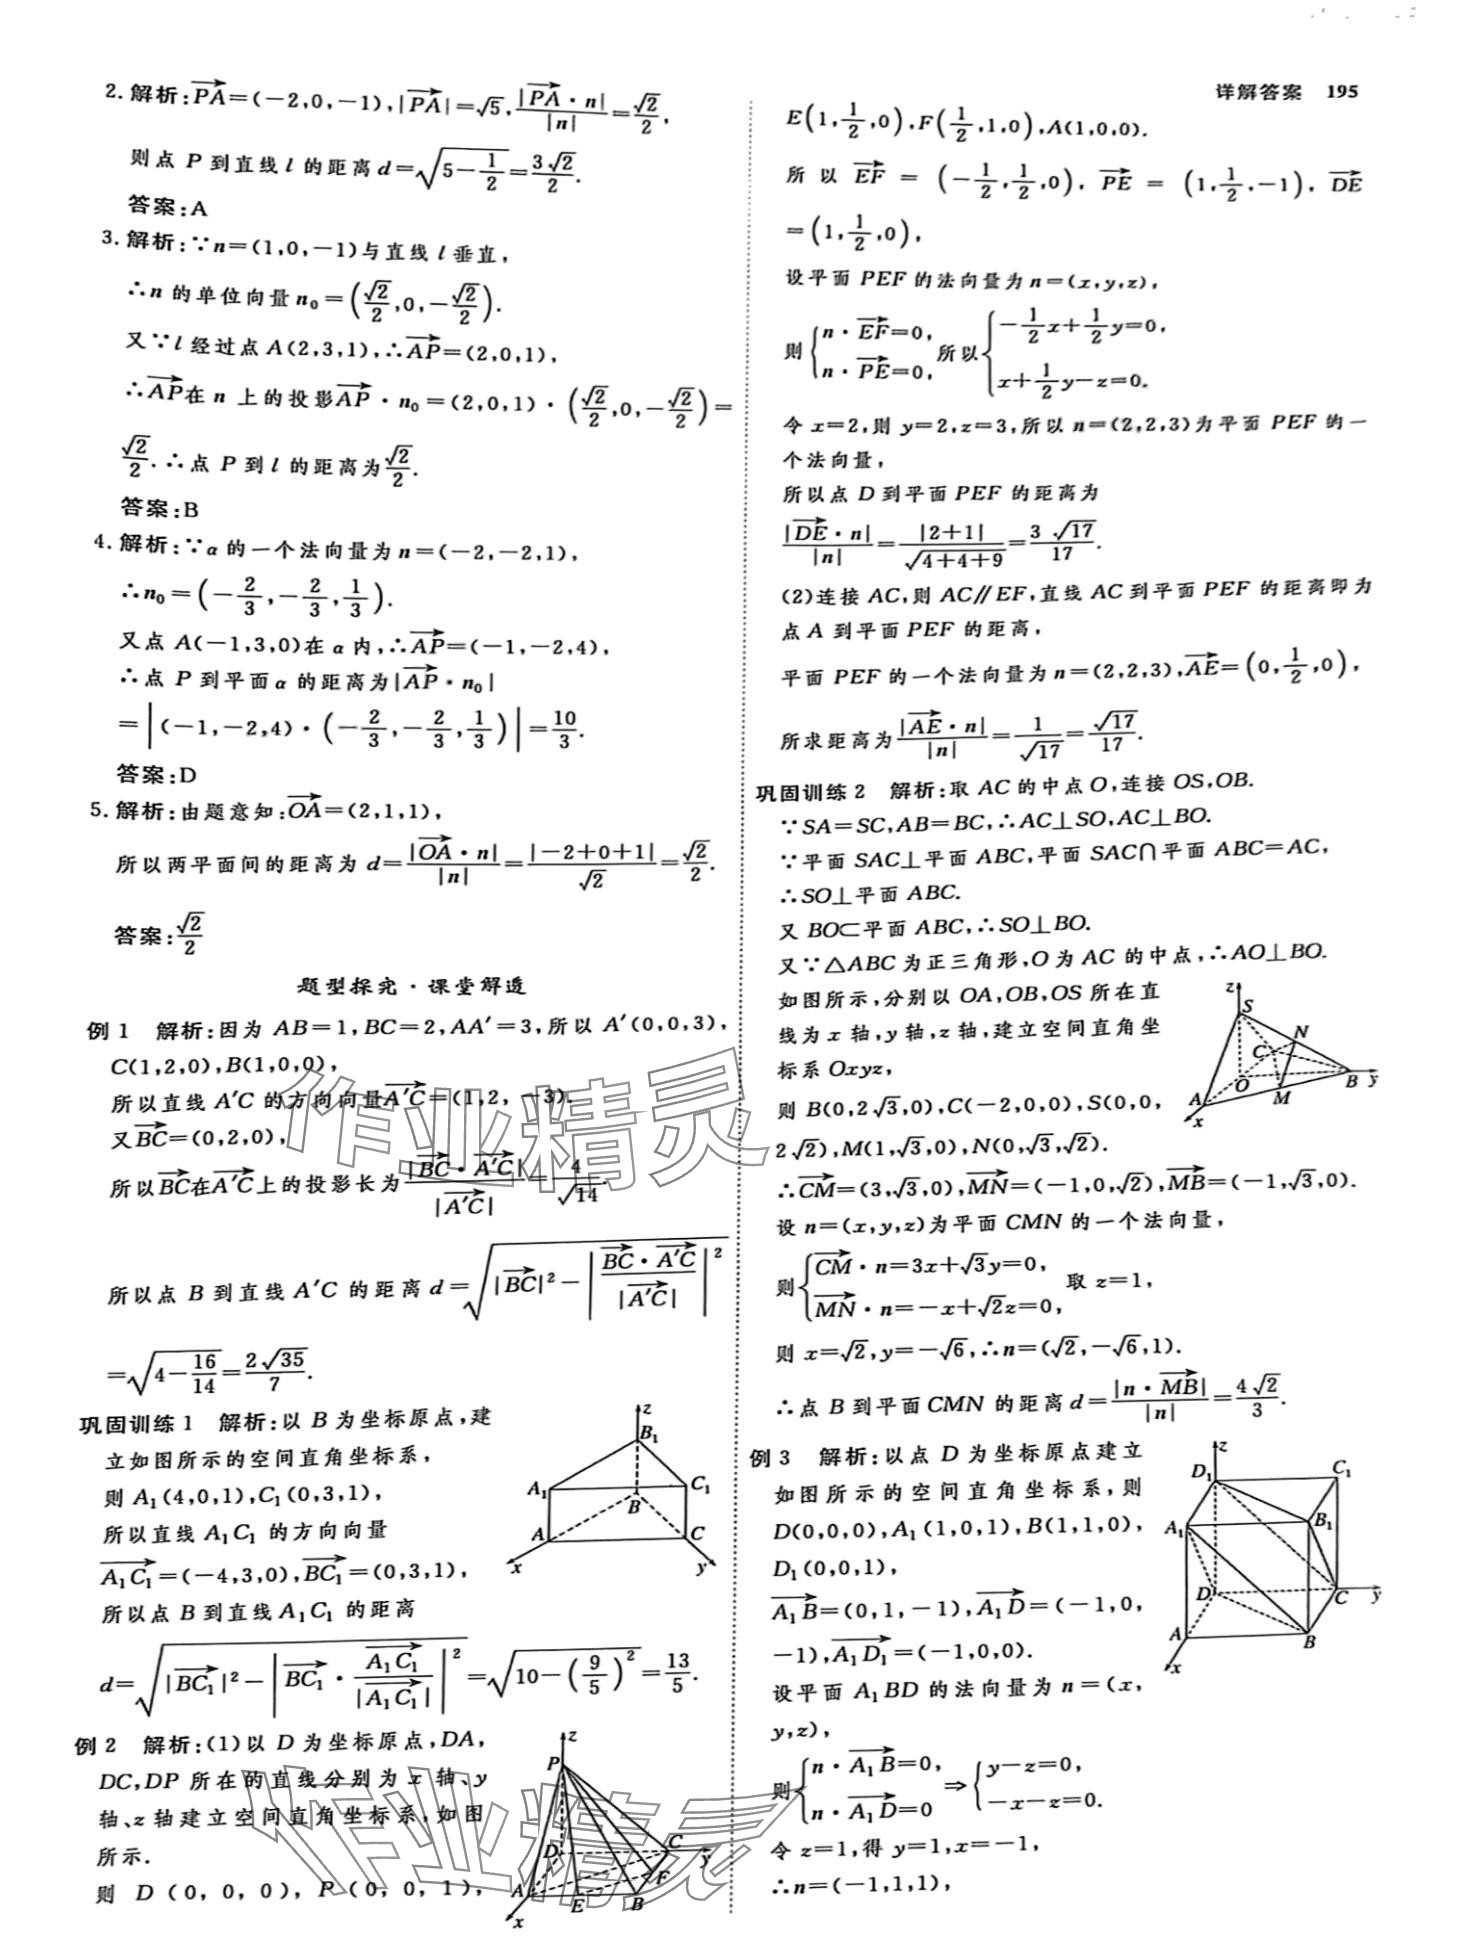 详解答案 195
2. 解析:$\overrightarrow{PA}$=(-2,0,-1),|$\overrightarrow{PA}$|=$\sqrt{5}$,$\frac{|\overrightarrow{PA}·n|}{|n|}$=$\frac{\sqrt{2}}{2}$,
则点 P 到直线 l 的距离 d=$\sqrt{5-\frac{1}{2}}$=$\frac{3\sqrt{2}}{2}$.
答案:A
3. 解析:∵n=(1,0,-1)与直线 l 垂直,
∴n 的单位向量 n₀=($\frac{\sqrt{2}}{2}$,0,-$\frac{\sqrt{2}}{2}$).
又∵l 经过点 A(2,3,1),∴$\overrightarrow{AP}$=(2,0,1),
∴$\overrightarrow{AP}$在 n 上的投影$\overrightarrow{AP}$·n₀=(2,0,1)·($\frac{\sqrt{2}}{2}$,0,-$\frac{\sqrt{2}}{2}$)=
$\frac{\sqrt{2}}{2}$.∴点 P 到 l 的距离为$\frac{\sqrt{2}}{2}$.
答案:B
4. 解析:∵α 的一个法向量为 n=(-2,-2,1),
∴n₀=(-$\frac{2}{3}$,-$\frac{2}{3}$,$\frac{1}{3}$).
又点 A(-1,3,0)在 α 内,∴$\overrightarrow{AP}$=(-1,-2,4),
∴点 P 到平面 α 的距离为|$\overrightarrow{AP}$·n₀|
=|(-1,-2,4)·(-$\frac{2}{3}$,-$\frac{2}{3}$,$\frac{1}{3}$)|=$\frac{10}{3}$.
答案:D
5. 解析:由题意知:$\overrightarrow{OA}$=(2,1,1),
所以两平面间的距离为 d=$\frac{|\overrightarrow{OA}·n|}{|n|}$=$\frac{|-2+0+1|}{\sqrt{2}}$=$\frac{\sqrt{2}}{2}$.
答案:$\frac{\sqrt{2}}{2}$
题型探究·课堂解透
例 1 解析:因为 AB=1,BC=2,AA′=3,所以 A′(0,0,3),
C(1,2,0),B(1,0,0),
所以直线 A′C 的方向向量$\overrightarrow{A′C}$=(1,2,-3).
又$\overrightarrow{BC}$=(0,2,0),
所以$\overrightarrow{BC}$在$\overrightarrow{A′C}$上的投影长为$\frac{|\overrightarrow{BC}·\overrightarrow{A′C}|}{|\overrightarrow{A′C}|}$=$\frac{4}{\sqrt{14}}$.
所以点 B 到直线 A′C 的距离 d=$\sqrt{|\overrightarrow{BC}|^2-\left|\frac{\overrightarrow{BC}·\overrightarrow{A′C}}{|\overrightarrow{A′C}|}\right|^2}$
=$\sqrt{4-\frac{16}{14}}$=$\frac{2\sqrt{35}}{7}$.
巩固训练 1 解析:以 B 为坐标原点,建
立如图所示的空间直角坐标系,
则 A₁(4,0,1),C₁(0,3,1),
所以直线 A₁C₁ 的方向向量
$\overrightarrow{A_1C_1}$=(-4,3,0),$\overrightarrow{BC_1}$=(0,3,1),
所以点 B 到直线 A₁C₁ 的距离
d=$\sqrt{|\overrightarrow{BC_1}|^2-\left|\overrightarrow{BC_1}·\frac{\overrightarrow{A_1C_1}}{|\overrightarrow{A_1C_1}|}\right|^2}$=$\sqrt{10-(\frac{9}{5})^2}$=$\frac{13}{5}$.
z
B₁
A₁
C₁
B
A
C
x
y
例 2 解析:(1)以 D 为坐标原点,DA,
DC,DP 所在的直线分别为 x 轴、y
轴、z 轴建立空间直角坐标系,如图
所示.
则 D(0,0,0),P(0,0,1),
z
P
D
C
y
F
A
E
B
x
E(1,$\frac{1}{2}$,0),F($\frac{1}{2}$,1,0),A(1,0,0).
所以 $\overrightarrow{EF}$=(-$\frac{1}{2}$,$\frac{1}{2}$,0),$\overrightarrow{PE}$=(1,$\frac{1}{2}$,-1),$\overrightarrow{DE}$
=(1,$\frac{1}{2}$,0),
设平面 PEF 的法向量为 n=(x,y,z),
则$\begin{cases}n·\overrightarrow{EF}=0,\\n·\overrightarrow{PE}=0,\end{cases}$所以$\begin{cases}-\frac{1}{2}x+\frac{1}{2}y=0,\\x+\frac{1}{2}y-z=0.\end{cases}$
令 x=2,则 y=2,z=3,所以 n=(2,2,3)为平面 PEF 的一
个法向量,
所以点 D 到平面 PEF 的距离为
$\frac{|\overrightarrow{DE}·n|}{|n|}$=$\frac{|2+1|}{\sqrt{4+4+9}}$=$\frac{3\sqrt{17}}{17}$.
(2)连接 AC,则 AC∥EF,直线 AC 到平面 PEF 的距离即为
点 A 到平面 PEF 的距离,
平面 PEF 的一个法向量为 n=(2,2,3),$\overrightarrow{AE}$=(0,$\frac{1}{2}$,0),
所求距离为$\frac{|\overrightarrow{AE}·n|}{|n|}$=$\frac{1}{\sqrt{17}}$=$\frac{\sqrt{17}}{17}$.
巩固训练 2 解析:取 AC 的中点 O,连接 OS,OB.
∵SA=SC,AB=BC,∴AC⊥SO,AC⊥BO.
∵平面 SAC⊥平面 ABC,平面 SAC∩平面 ABC=AC,
∴SO⊥平面 ABC.
又 BO⊂平面 ABC,∴SO⊥BO.
又∵△ABC 为正三角形,O 为 AC 的中点,∴AO⊥BO.
如图所示,分别以 OA,OB,OS 所在直
线为 x 轴,y 轴,z 轴,建立空间直角坐
标系 Oxyz,
则 B(0,2$\sqrt{3}$,0),C(-2,0,0),S(0,0,
2$\sqrt{2}$),M(1,$\sqrt{3}$,0),N(0,$\sqrt{3}$,$\sqrt{2}$).
z
S
N
C
O
B
y
A
M
x
∴$\overrightarrow{CM}$=(3,$\sqrt{3}$,0),$\overrightarrow{MN}$=(-1,0,$\sqrt{2}$),$\overrightarrow{MB}$=(-1,$\sqrt{3}$,0).
设 n=(x,y,z)为平面 CMN 的一个法向量,
则$\begin{cases}\overrightarrow{CM}·n=3x+\sqrt{3}y=0,\\\overrightarrow{MN}·n=-x+\sqrt{2}z=0,\end{cases}$取 z=1,
则 x=$\sqrt{2}$,y=-$\sqrt{6}$,∴n=($\sqrt{2}$,-$\sqrt{6}$,1).
∴点 B 到平面 CMN 的距离 d=$\frac{|n·\overrightarrow{MB}|}{|n|}$=$\frac{4\sqrt{2}}{3}$.
例 3 解析:以点 D 为坐标原点建立
如图所示的空间直角坐标系,则
D(0,0,0),A₁(1,0,1),B(1,1,0),
D₁(0,0,1),
$\overrightarrow{A_1B}$=(0,1,-1),$\overrightarrow{A_1D}$=(-1,0,
-1),$\overrightarrow{A_1D_1}$=(-1,0,0).
设平面 A₁BD 的法向量为 n=(x,
y,z),
则$\begin{cases}n·\overrightarrow{A_1B}=0,\\n·\overrightarrow{A_1D}=0\end{cases}$⇒$\begin{cases}y-z=0,\\-x-z=0.\end{cases}$
令 z=1,得 y=1,x=-1,
∴n=(-1,1,1),
z
D₁
C₁
A₁
B₁
D
C
y
A
B
x
作业精灵
作业精灵